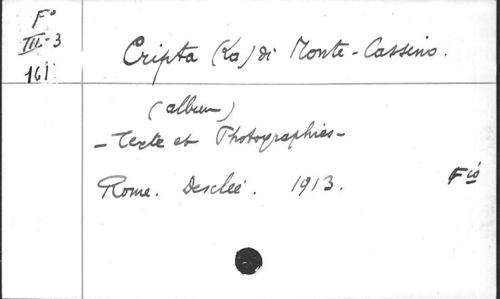 F°
III.-3
161
Cripta (La) di Monte-Cassino.
(album)
- Texte et Photographies -
Rome. Desclée. 1913. Fió